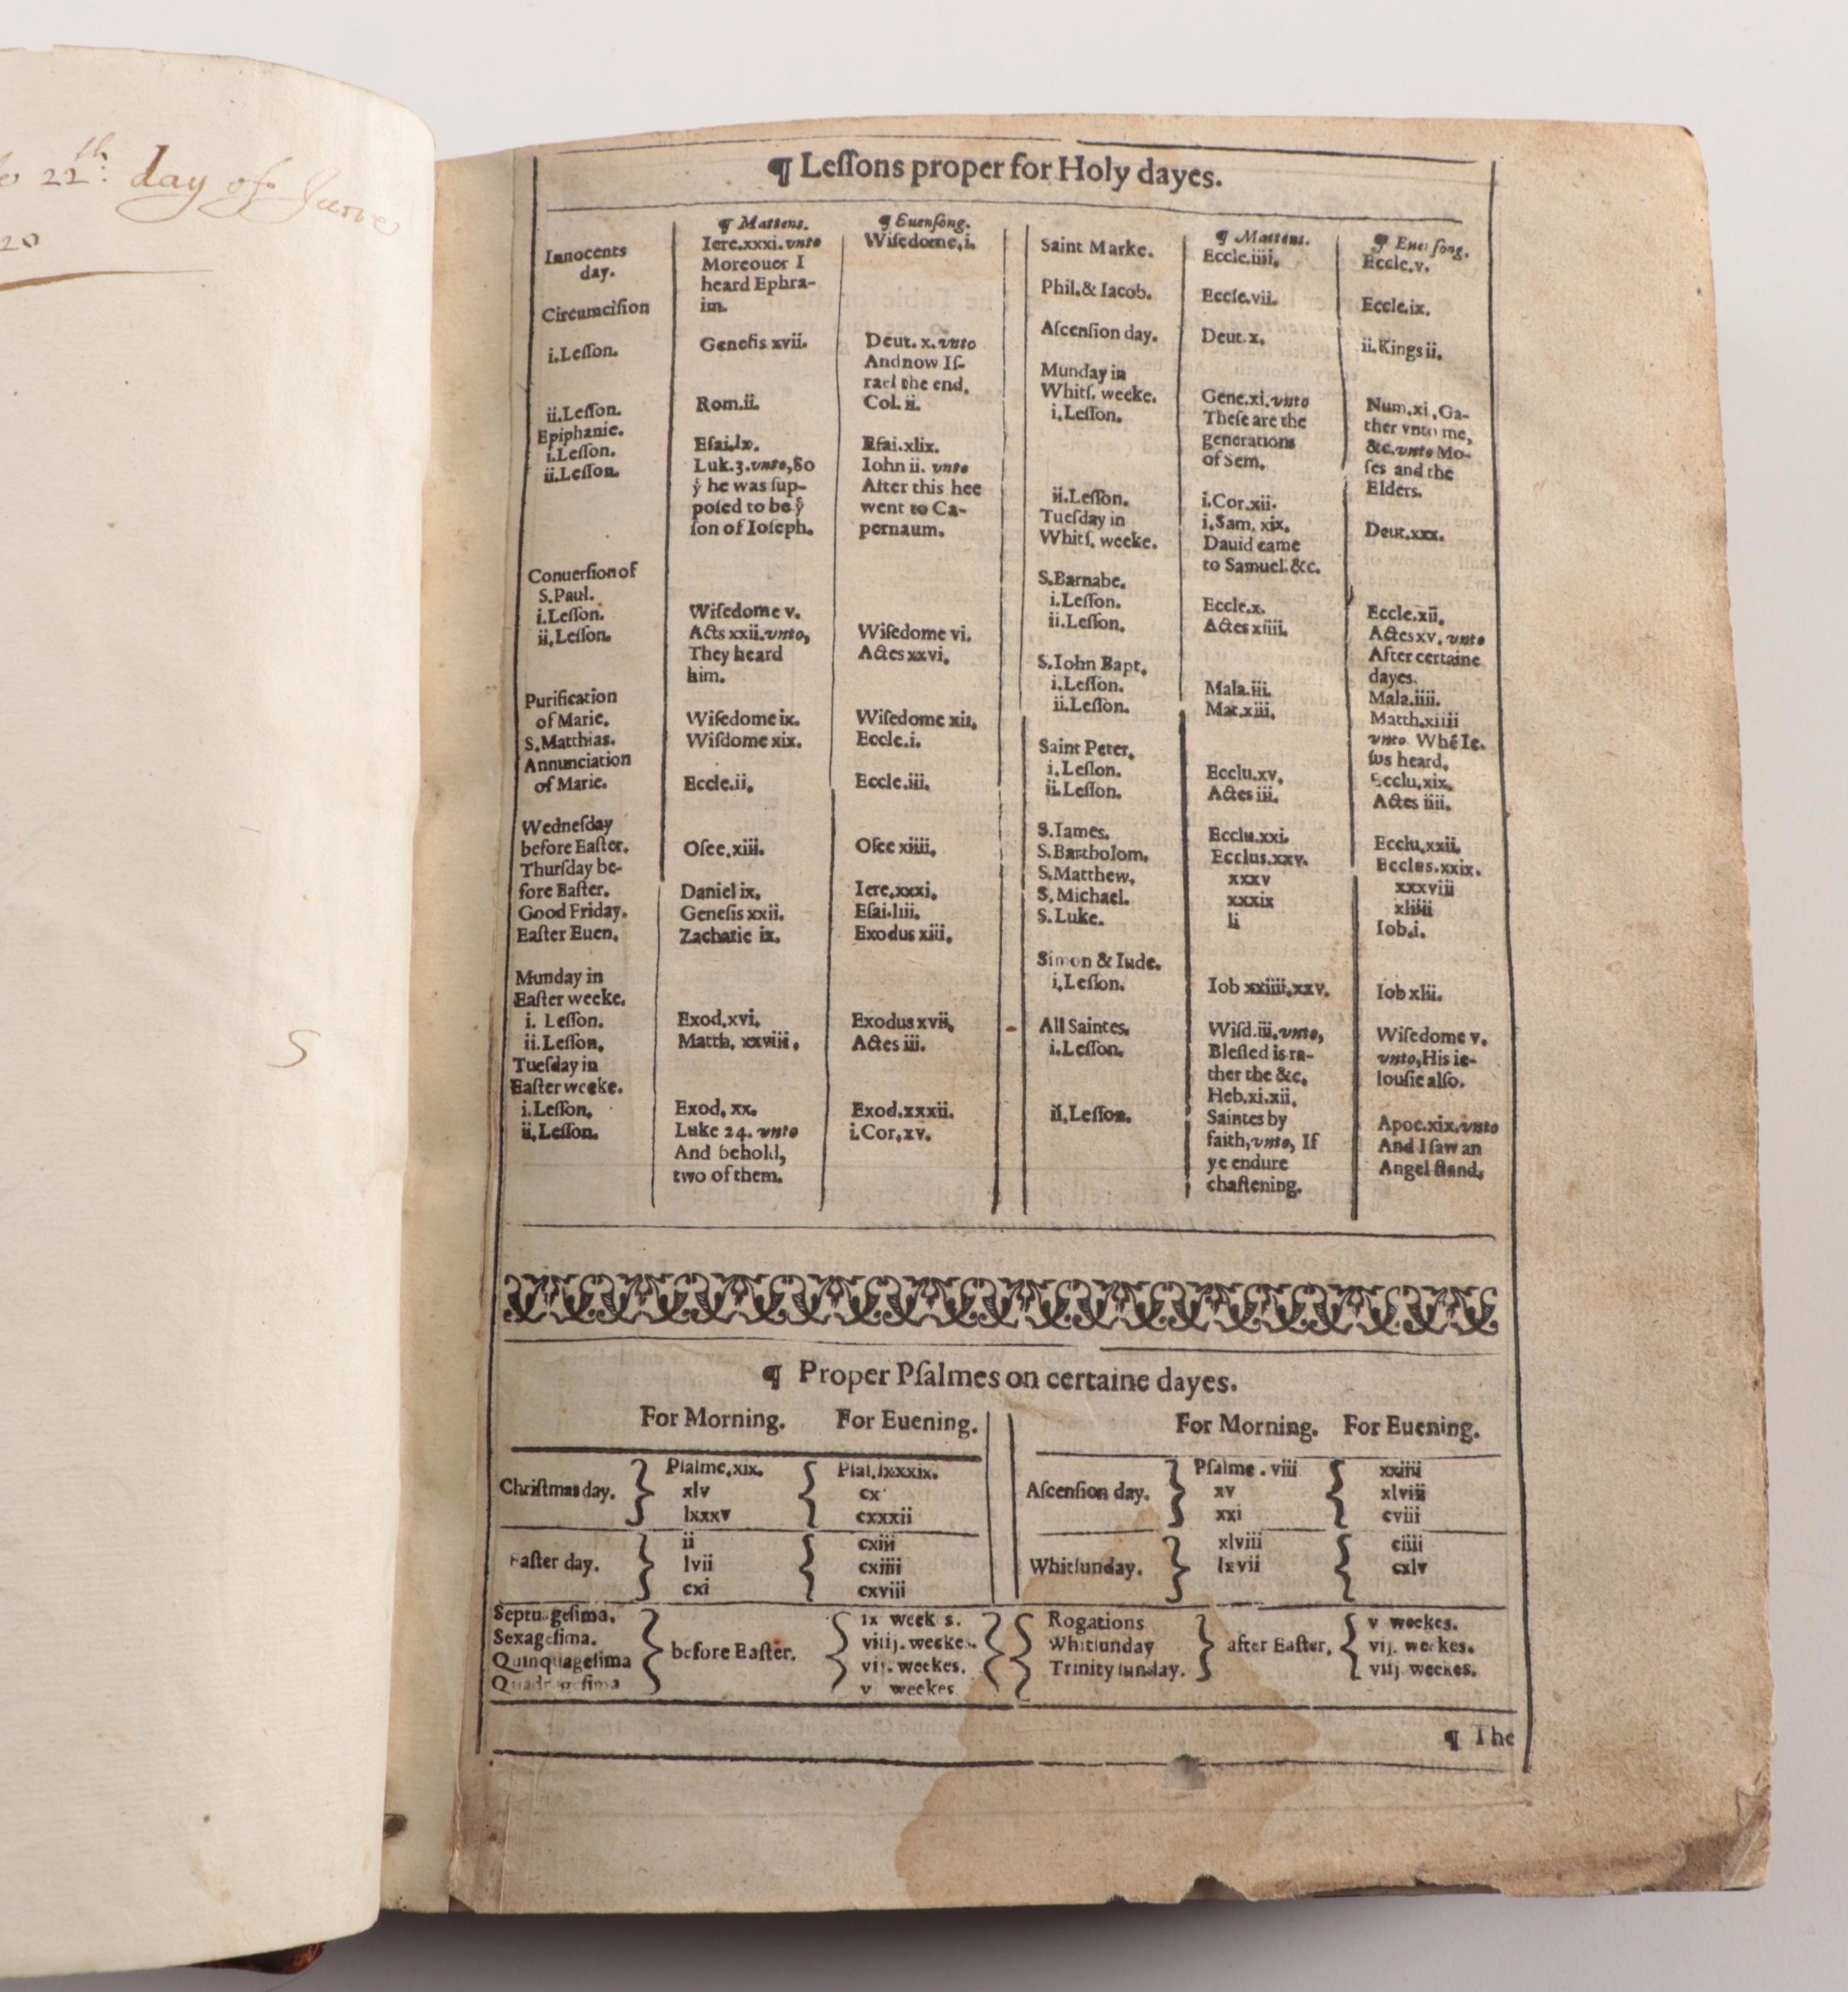 22th: day of June
20
S
¶ Leſſons proper for Holy dayes.
¶ Mattens. ¶ Euenſong.
Innocents day. Iere.xxxi.vnto Wiſedome,i.
Moreouer I
heard Ephra-
im.
Circumciſion
i.Leſſon. Geneſis xvii. Deut. x. vnto
And now Iſ-
rael the end.
ii.Leſſon. Rom.ii. Col. ii.
Epiphanie.
i.Leſſon. Eſai.lx. Eſai.xlix.
ii.Leſſon. Luk.3.vnto,So Iohn ii. vnto
ẏ he was ſup- After this hee
poſed to be ẏ went to Ca-
ſon of Ioſeph. pernaum.
Conuerſion of
S.Paul.
i.Leſſon. Wiſedome v. Wiſedome vi.
ii,Leſſon. Acts xxii.vnto, Actes xxvi,
They heard
him.
Purification
of Marie. Wiſedome ix. Wiſedome xii,
S.Matthias. Wiſdome xix. Eccle.i.
Annunciation
of Marie. Eccle.ii, Eccle.iii.
Wedneſday
before Eaſter. Oſee,xiii. Oſee xiiii,
Thurſday be-
fore Eaſter. Daniel ix, Iere,xxxi,
Good Friday. Geneſis xxii. Eſai.liii.
Eaſter Euen, Zacharie ix. Exodus xiii,
Munday in
Eaſter weeke.
i. Leſſon. Exod,xvi, Exodus xvii,
ii.Leſſon, Matth, xxviii, Actes iii.
Tueſday in
Eaſter weeke.
i.Leſſon, Exod, xx. Exod.xxxii.
ii,Leſſon. Luke 24. vnto i.Cor,xv.
And behold,
two of them.
¶ Mattens. ¶ Euenſong.
Saint Marke. Eccle.iiii, Eccle.v.
Phil.& Iacob. Eccle.vii. Eccle.ix.
Aſcenſion day. Deut.x, ii.Kings ii,
Munday in
Whitſ. weeke.
i.Leſſon. Gene.xi,vnto Num,xi,Ga-
Theſe are the ther vnto me,
generations &c.vnto Mo-
of Sem, ſes and the
Elders.
ii.Leſſon. i.Cor.xii.
Tueſday in i,Sam. xix, Deut.xxx.
Whitſ, weeke. Dauid came
to Samuel.&c.
S.Barnabe.
i.Leſſon. Eccle.x. Eccle.xii,
ii.Leſſon, Actes xiiii, Actes xv, vnto
After certaine
dayes.
S.Iohn Bapt,
i.Leſſon. Mala.iii. Mala.iiii.
ii.Leſſon. Mat.xiii, Matth.xiiii
vnto Whē Ie-
ſus heard,
Saint Peter,
i.Leſſon. Ecclu.xv, Ecclu,xix,
ii.Leſſon. Actes iii. Actes iiii.
S.Iames. Ecclu.xxi. Ecclu,xxii,
S.Bartholom, Ecclus.xxv. Ecclus.xxix.
S.Matthew, xxxv xxxviii
S,Michael. xxxix xliiii
S.Luke. li Iob.i.
Simon & Iude.
i,Leſſon. Iob xxiiii,xxv. Iob xlii.
All Saintes,
i.Leſſon, Wiſd.iii,vnto, Wiſedome v.
Bleſſed is ra- vnto,His ie-
ther the &c, louſie alſo.
ii,Leſſon. Heb.xi.xii,
Saintes by Apoc.xix,vnto
faith,vnto, If And I ſaw an
ye endure Angel ſtand,
chaſtening.
¶ Proper Pſalmes on certaine dayes.
For Morning. For Euening. For Morning. For Euening.
Chriſtmas day. Pſalme,xix. Pſal,lxxxix.
xlv cx
lxxxv cxxxii
Aſcenſion day. Pſalme . viii xxiiii
xv xlvii
xxi cviii
Eaſter day. ii cxiii
lvii cxiiii
cxi cxviii
Whitſunday. xlviii ciiii
lxvii cxlv
Septuageſima. before Eaſter. ix weekes.
Sexageſima. viiij. weekes.
Quinquageſima vij. weekes.
Quadrageſima v weekes
Rogations after Eaſter, v weekes.
Whitſunday vij. weekes.
Trinity ſunday. viij weekes.
¶ The